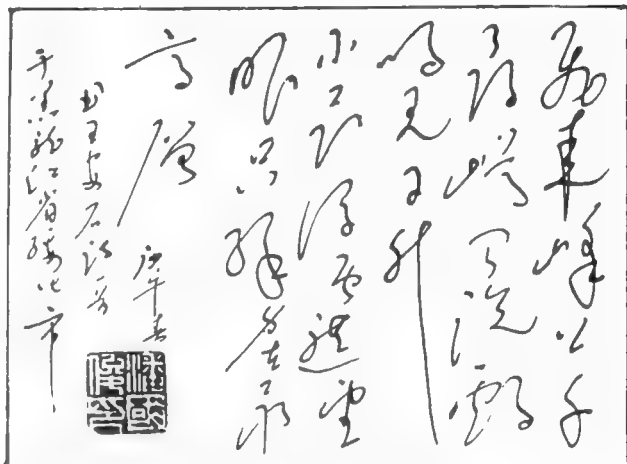 飛来峰上千
寻塔闻说鸡
鸣见日升
不畏浮云遮望
眼只缘身在最
高层 庚午春
书王安石诗一首
于黑龙江省绥化市